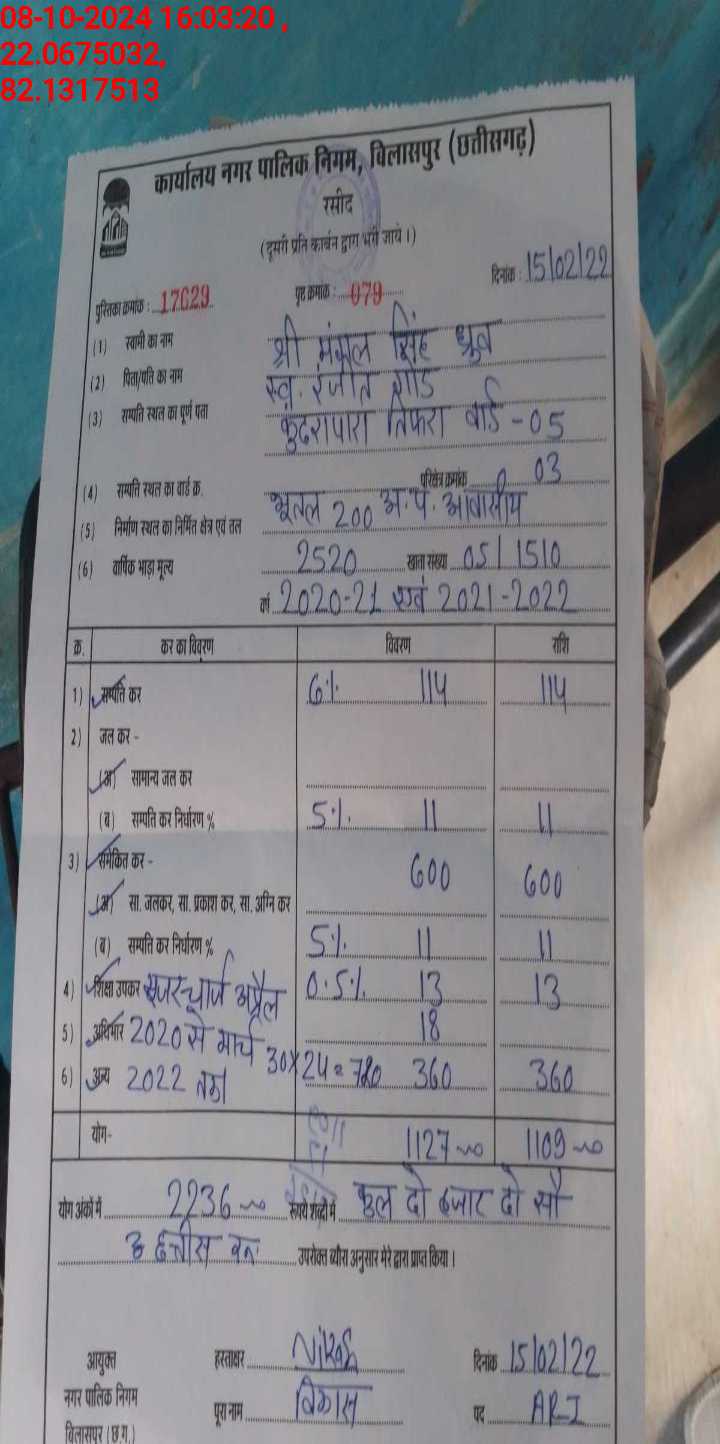 08-10-2024 16:03:20,
22.0675032,
82.1317513
कार्यालय नगर पालिक निगम, बिलासपुर (छत्तीसगढ़)
रसीद
(दूसरी प्रति कार्बन द्वारा भरी जाये।)
दिनांक : 15/02/22
पुस्तिका क्रमांक : 17629 पृष्ट क्रमांक : 079
(1) स्वामी का नाम श्री मंगल सिंह ध्रुव
(2) पिता/पति का नाम स्व. रंजीत गोंड
(3) सम्पति स्थल का पूर्ण पता कुदरापारा तिफरा वार्ड - 05
(4) सम्पति स्थल का वार्ड क्र. परिक्षेत्र क्रमांक 03
(5) निर्माण स्थल का निर्मित क्षेत्र एवं तल भूतल 200 अ.प. आवासीय
(6) वार्षिक भाड़ा मूल्य 2520 खाता संख्या 05/1510
वर्ष 2020-21 एवं 2021-2022
क्र. कर का विवरण विवरण राशि
1) सम्पति कर 6% 114 114
2) जल कर -
(अ) सामान्य जल कर
(ब) सम्पति कर निर्धारण % 5% 11 11
3) समेकित कर - 600 600
(अ) सा. जलकर, सा. प्रकाश कर, सा. अग्नि कर
(ब) सम्पति कर निर्धारण % 5% 11 11
4) शिक्षा उपकर सरचार्ज अप्रैल 0.5% 13 13
5) अधिभार 2020 से मार्च 18
6) अन्य 2022 तक 30X24=720 360 360
योग- 1127 1109
योग अंकों में 2236 रूपये शब्दों में कुल दो हजार दो सौ
छत्तीस उपरोक्त ब्यौरा अनुसार मेरे द्वारा प्राप्त किया।
आयुक्त हस्ताक्षर Nikas दिनांक 15/02/22
नगर पालिक निगम पूरा नाम विकास पद ARI
बिलासपुर (छ.ग.)